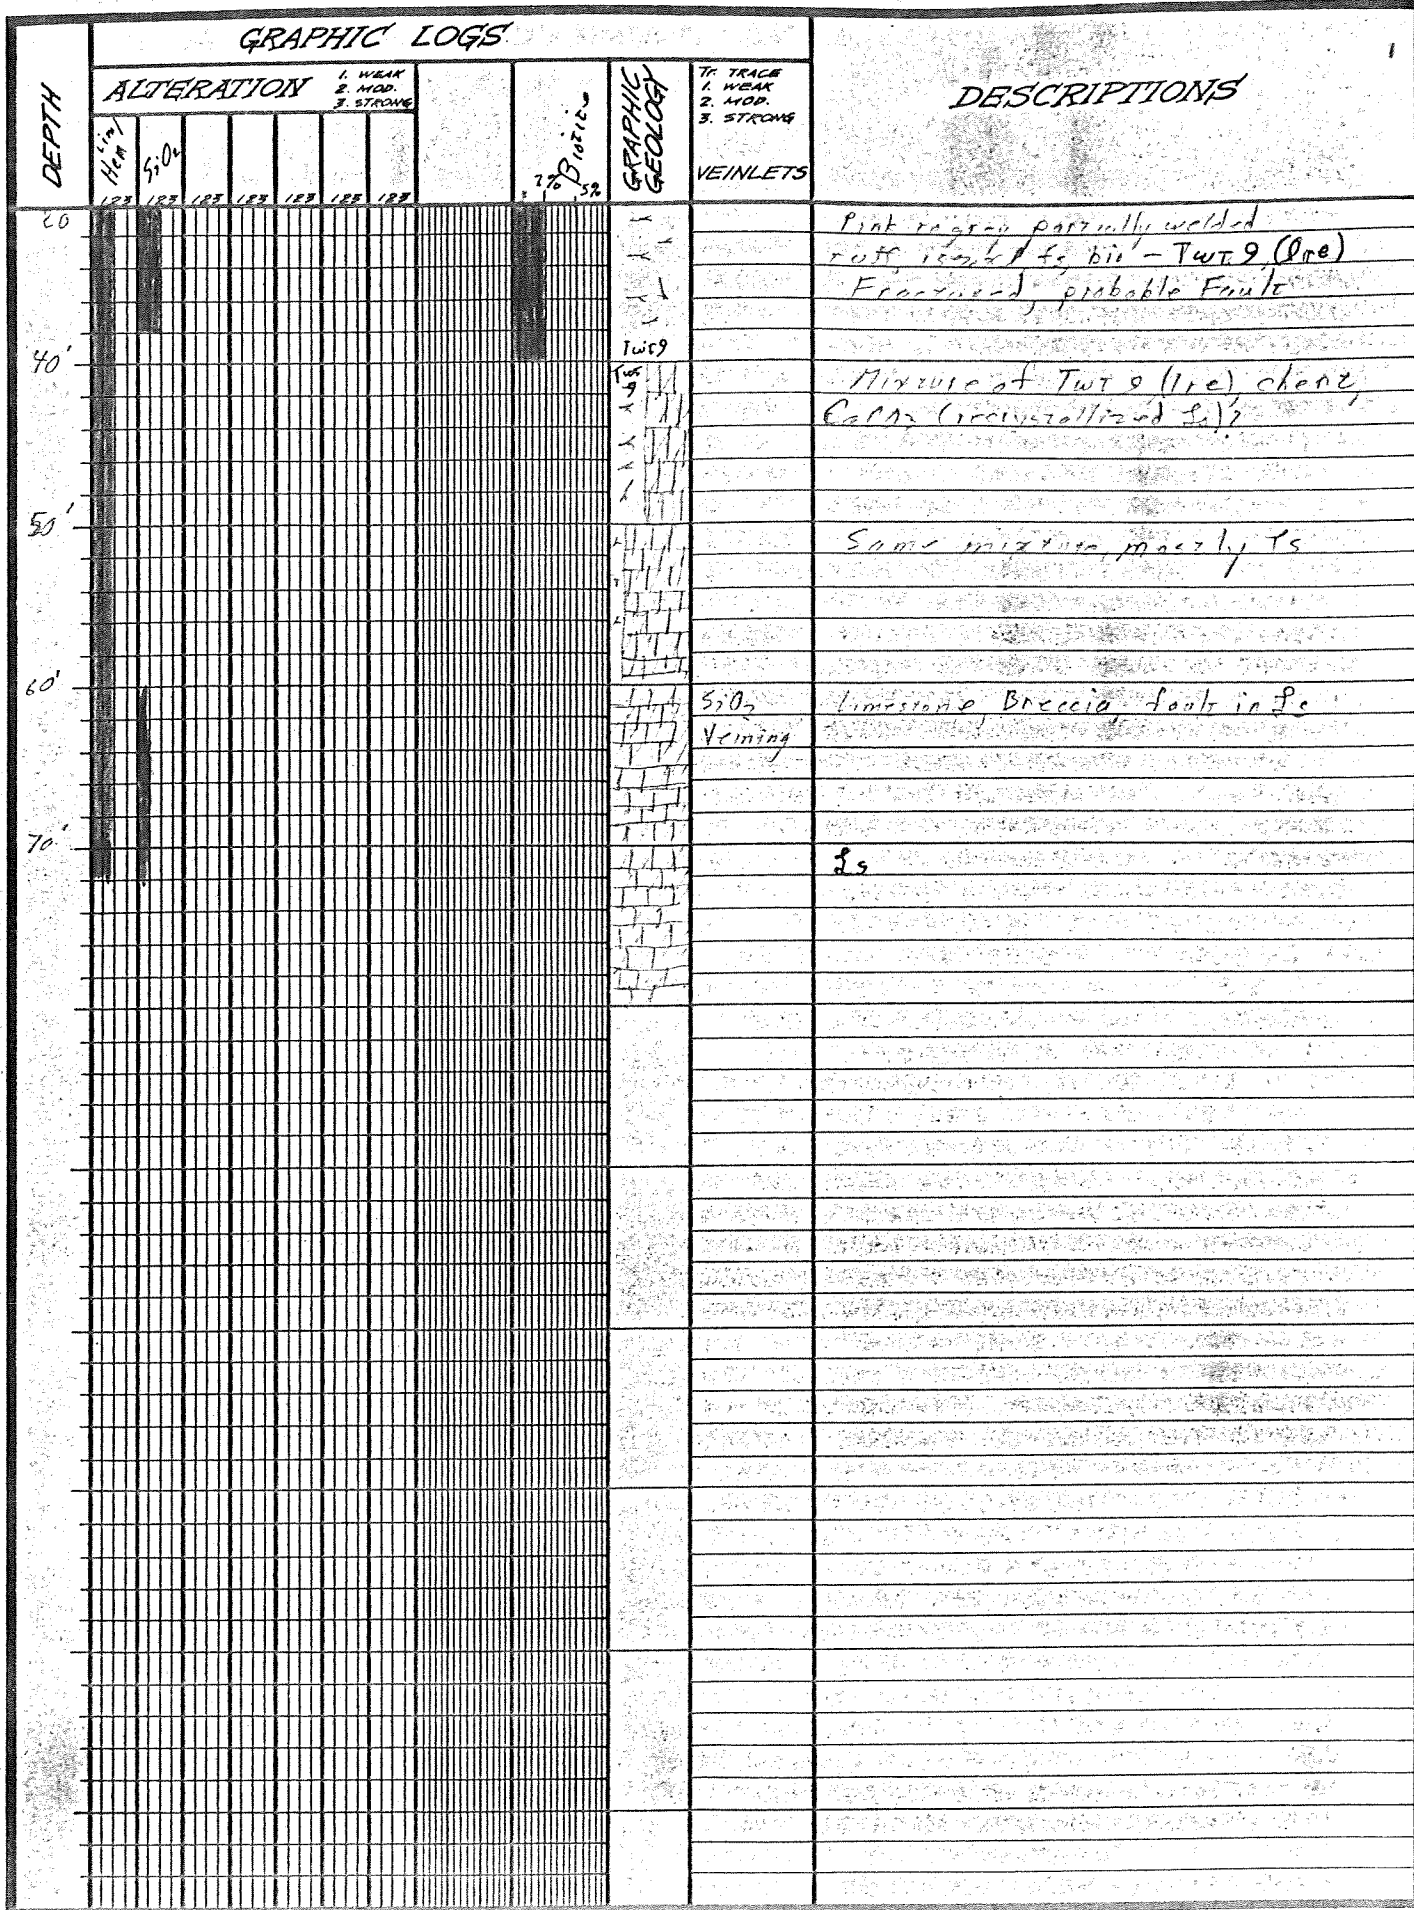 1
GRAPHIC LOGS
DEPTH
ALTERATION
1. WEAK
2. MOD.
3. STRONG
Lim/
Hem
SiO2
123 123 123 123 123 123 123
2%
5%
Biotite
GRAPHIC
GEOLOGY
Tr. TRACE
1. WEAK
2. MOD.
3. STRONG
VEINLETS
DESCRIPTIONS
20
Pink to gray partially welded
tuff, fs, bio - Twt9 (lre)
Fractured, probable Fault
Twt9
40'
Mixture of Twt9 (lre), chert,
CaCO3 (recrystallized Ls)?
50'
Same mixture, mostly Ls
60'
SiO2
Veining
Limestone, Breccia, fault in Ls
70'
Ls